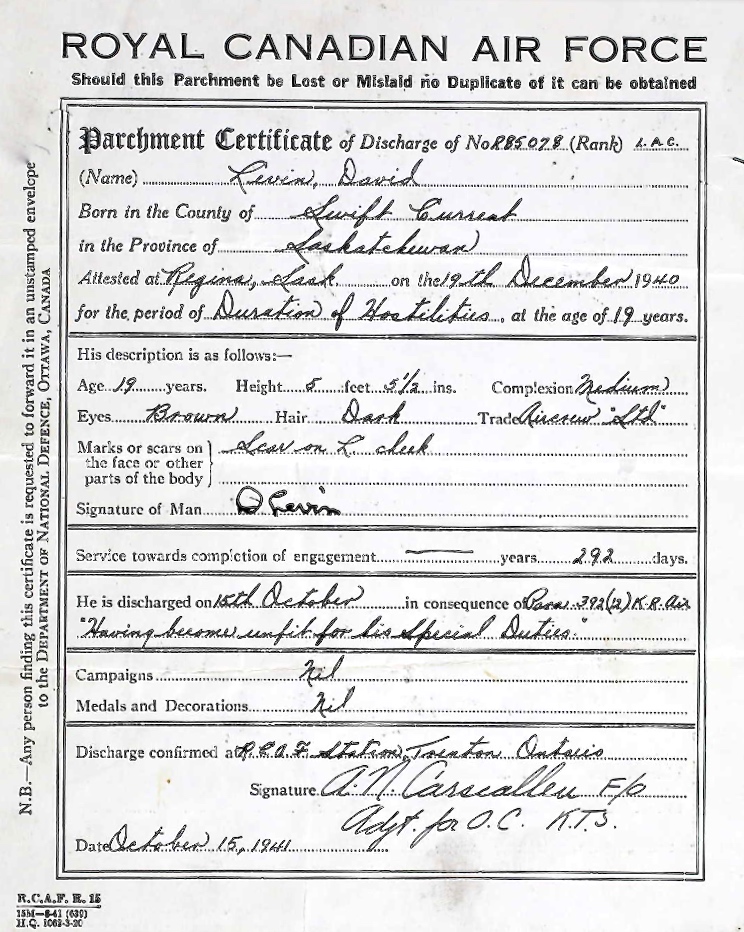 ROYAL CANADIAN AIR FORCE
Should this Parchment be Lost or Mislaid no Duplicate of it can be obtained
Parchment Certificate of Discharge of No R85078 (Rank) L.A.C.
(Name) Levin, David
Born in the County of Swift Current
in the Province of Saskatchewan
Attested at Regina, Sask. on the 19th December 1940
for the period of Duration of Hostilities, at the age of 19 years.
His description is as follows:—
Age 19 years. Height 5 feet 5½ ins. Complexion Medium
Eyes Brown Hair Dark Trade Aircrew "Std"
Marks or scars on the face or other parts of the body } Scar on L. cheek
Signature of Man D Levin
Service towards completion of engagement — years 292 days.
He is discharged on 15th October in consequence of Para. 392(12) K.R. Air
"Having become unfit for his Special Duties."
Campaigns Nil
Medals and Decorations Nil
Discharge confirmed at R.C.A.F. Station, Trenton Ontario
Signature A.N. Carscallen F/O
Adjt. for O.C. K.T.S.
Date October 15, 1941
N.B.—Any person finding this certificate is requested to forward it in an unstamped envelope
to the DEPARTMENT OF NATIONAL DEFENCE, OTTAWA, CANADA
R.C.A.F. R. 15
15M—8-41 (639)
H.Q. 1062-3-20